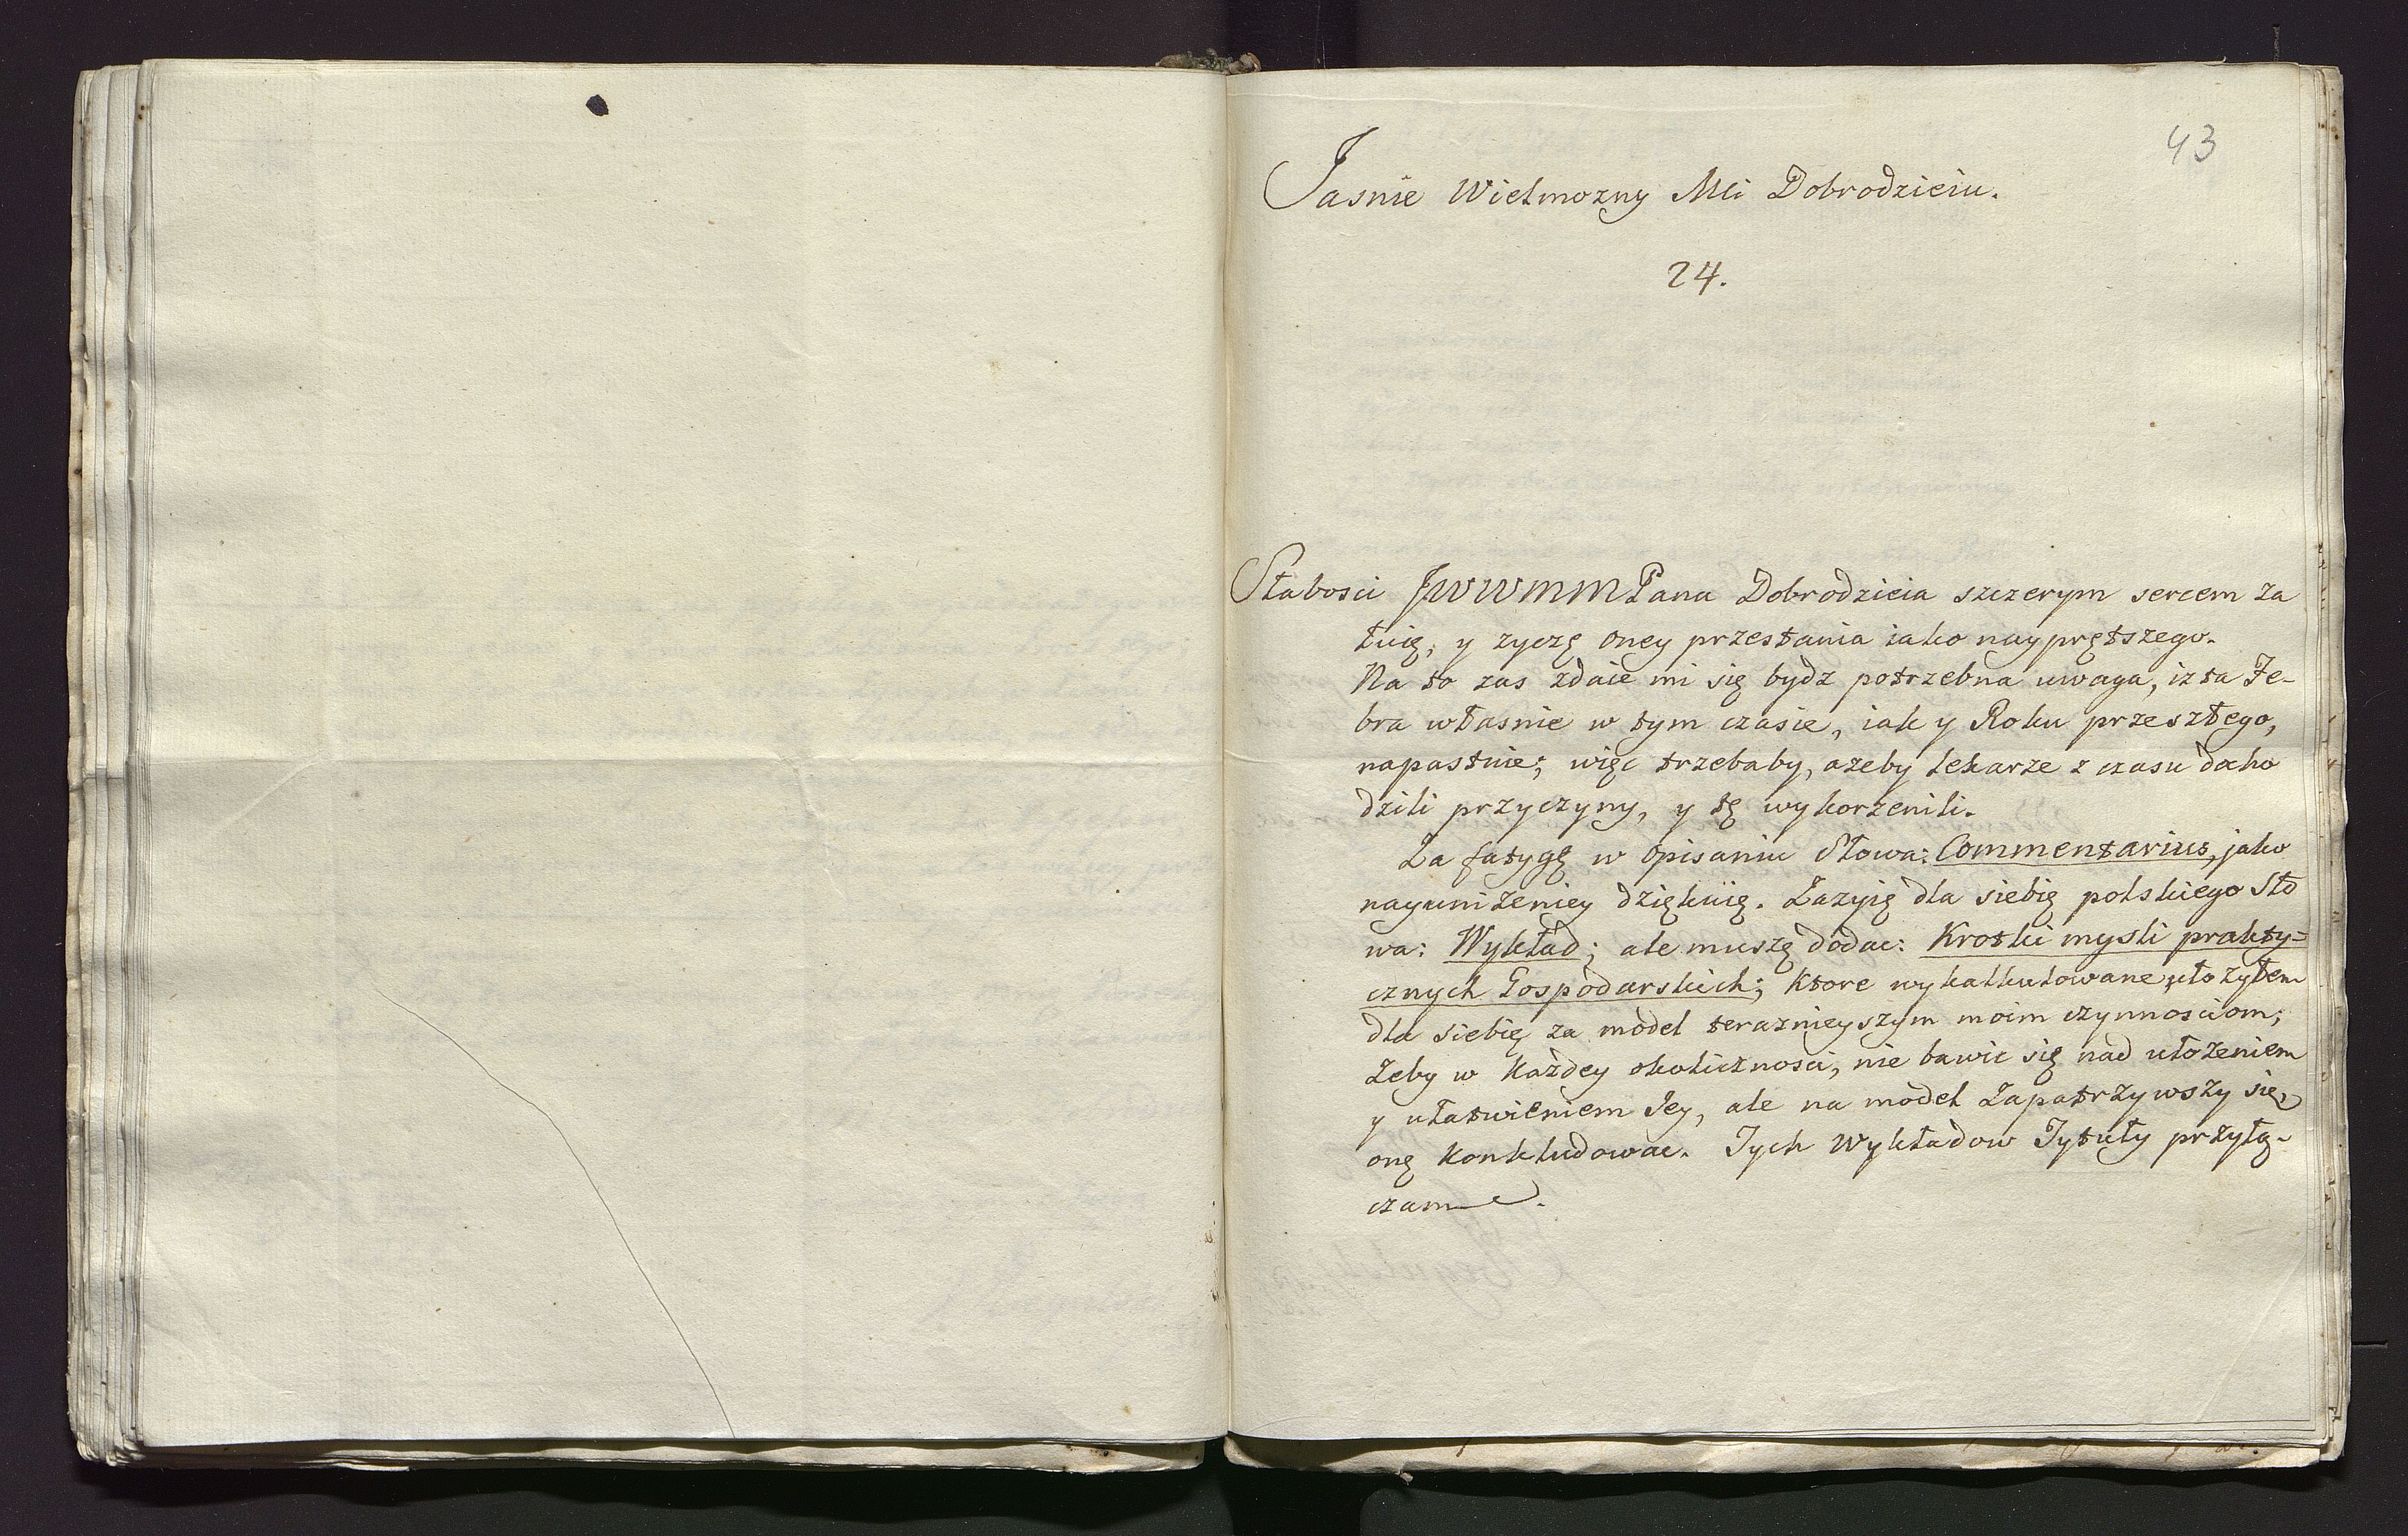 43
Jasnie Wielmozny Mci Dobrodzieiu.
24.
Słabosci JWWMMPana Dobrodzieia szczerym sercem za
łuię, y zyczę oney przestania iako nayprętszego.
Na to zas zdaie mi się bydz potrzebna uwaga, iz ta Fe-
bra własnie w tym czasie, iak y Roku przeszłego,
napastuie; więc trzebaby, azeby lekarze z czasu docho
dzili przyczyny, y tę wykorzenili.
Za fatygę w opisaniu Słowa: Commentarius, jako
nayunizeniey dziękuię. Zazyię dla siebię polskiego Sło
wa: Wykład; ale muszę dodac: Krotki mysli prakty=
cznych Gospodarskich; Ktore wykalkulowane ułozyłem
dla siebię za model teraznieyszym moim czynnosciom;
Zeby w Każdey okolicznosci, nie bawic się nad ułozeniem
y ułatwieniem Jey, ale na model Zapatrzywszy się,
onę Konkludowac. Tych Wykładow Tytuły przyłą-
czam.